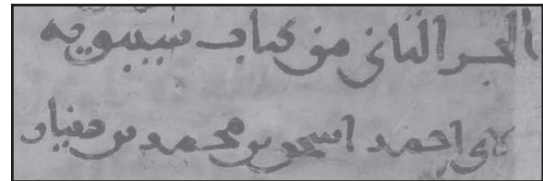 الجزء الثاني من كتاب سيبويه
لابي احمد اسحق بن محمد بن دينار